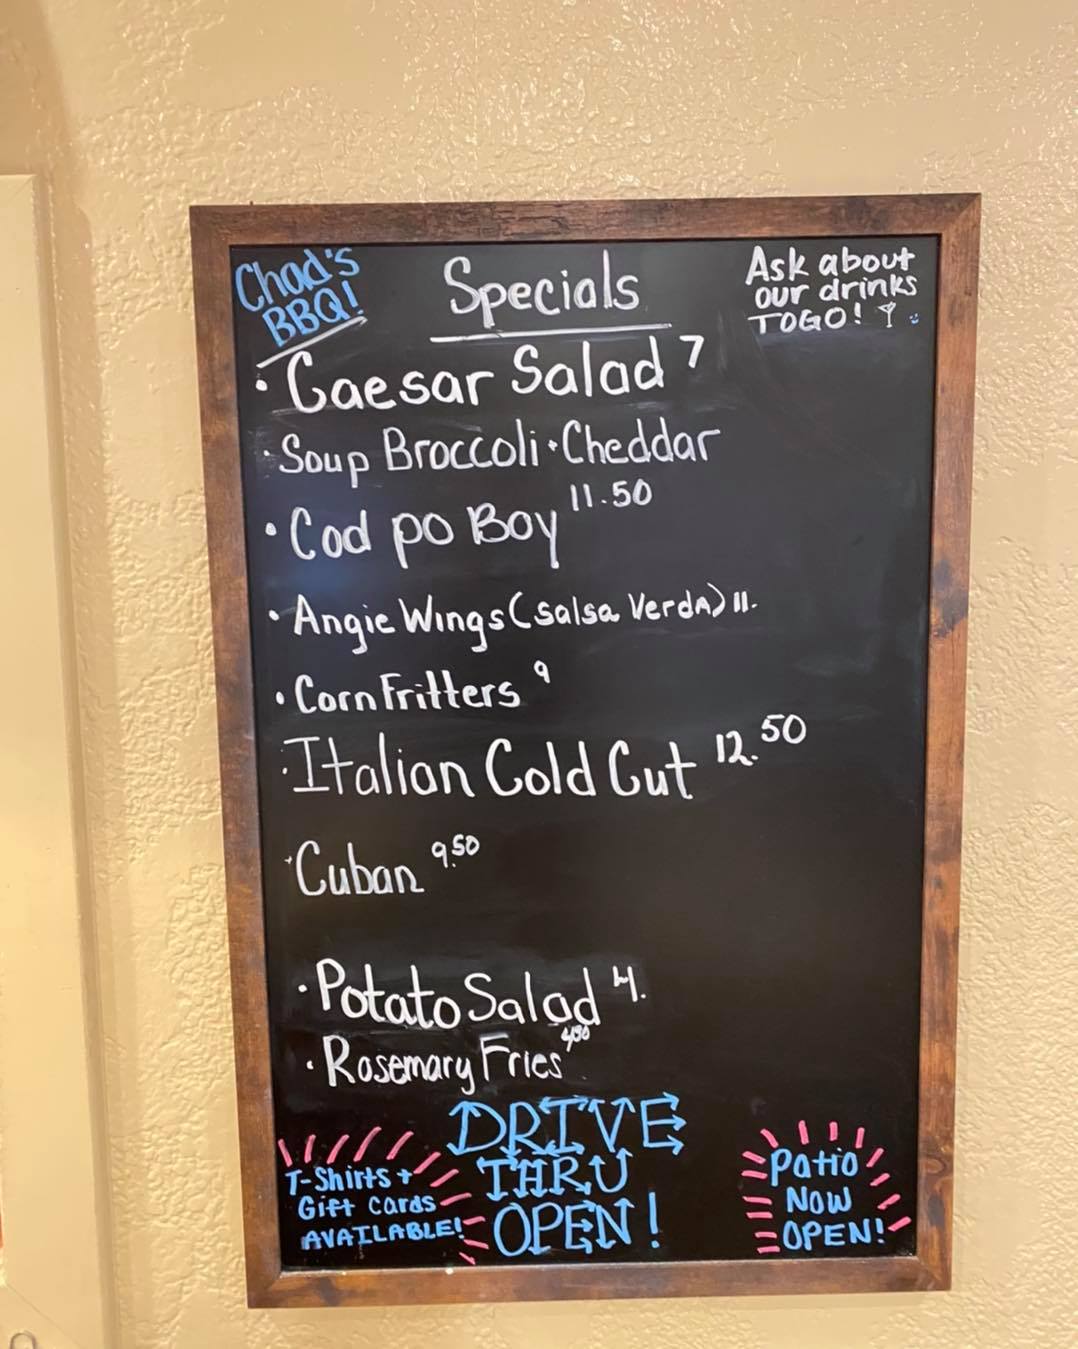 Chad's
BBQ!
Specials
Ask about
our drinks
TOGO!
• Caesar Salad 7
• Soup Broccoli • Cheddar
• Cod po Boy 11.50
• Angie Wings (Salsa Verda) 11.
• Corn Fritters 9
• Italian Cold Cut 12.50
• Cuban 9.50
• Potato Salad 4.
• Rosemary Fries
DRIVE
THRU
OPEN!
T-Shirts +
Gift Cards
AVAILABLE!
Patio
NOW
OPEN!